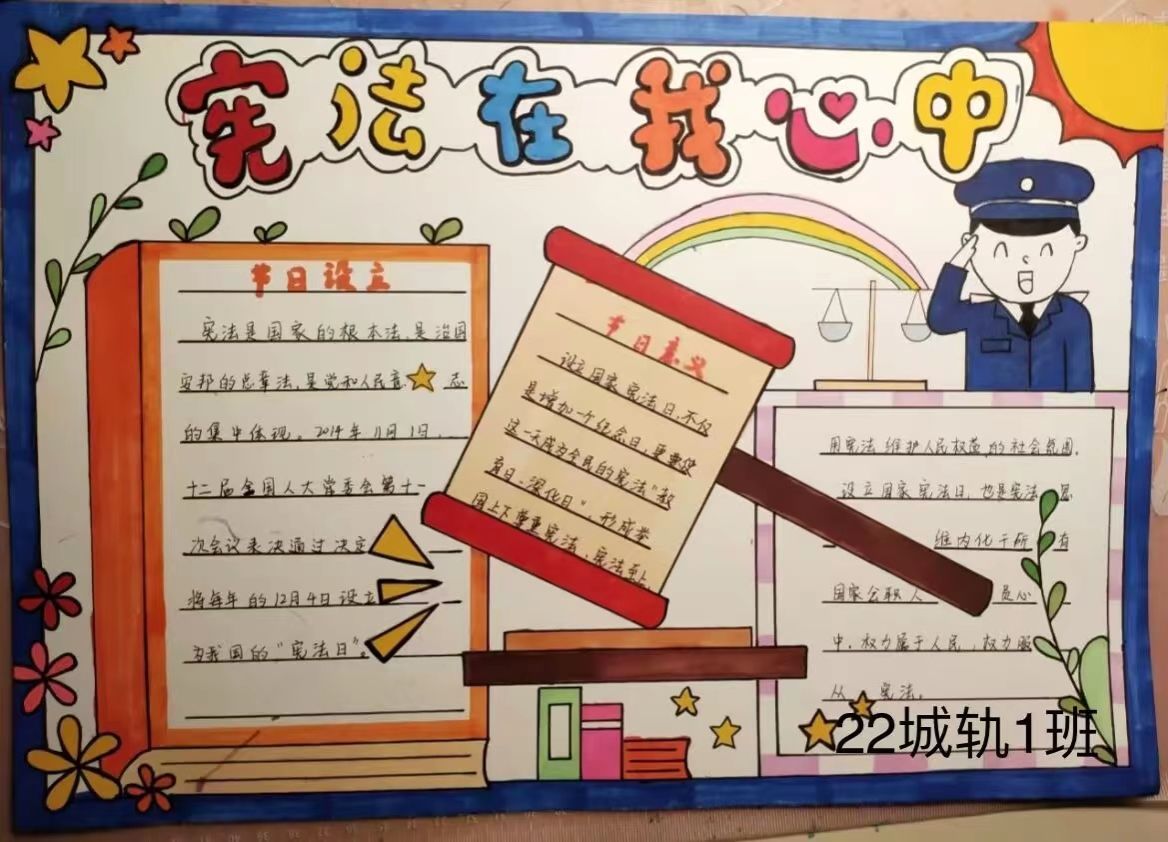 宪法在我心中
节日设立
宪法是国家的根本法,是治国
安邦的总章法,是党和人民意 志
的集中体现。2014年11月1日,
十二届全国人大常委会第十一
次会议表决通过决定
将每年的12月4日设立
为我国的“宪法日”。
节日意义
设立国家宪法日,不仅
是增加一个纪念日,更要使
这一天成为全民的宪法“教
育日、深化日”,形成举
国上下尊重宪法、宪法至上
用宪法维护人民权益的社会氛围.
设立国家宪法日,也是宪法 思
维内化于所 有
国家公职人 员心
中,权力属于人民,权力服
从 宪法。
22城轨1班